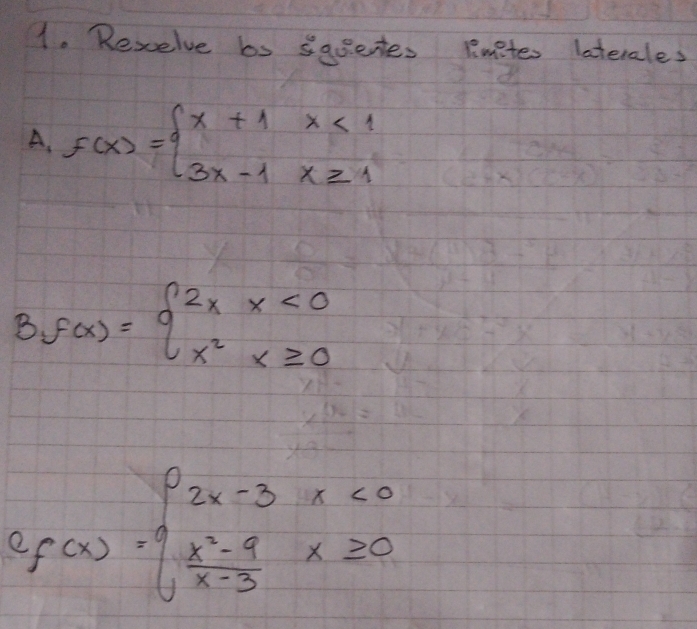 1. Resuelve los siguientes límites laterales
A. f(x) = { x + 1 x < 1
3x - 1 x ≥ 1
B. f(x) = { 2x x < 0
x² x ≥ 0
C f(x) = { 2x - 3 x < 0
x² - 9 / x - 3 x ≥ 0